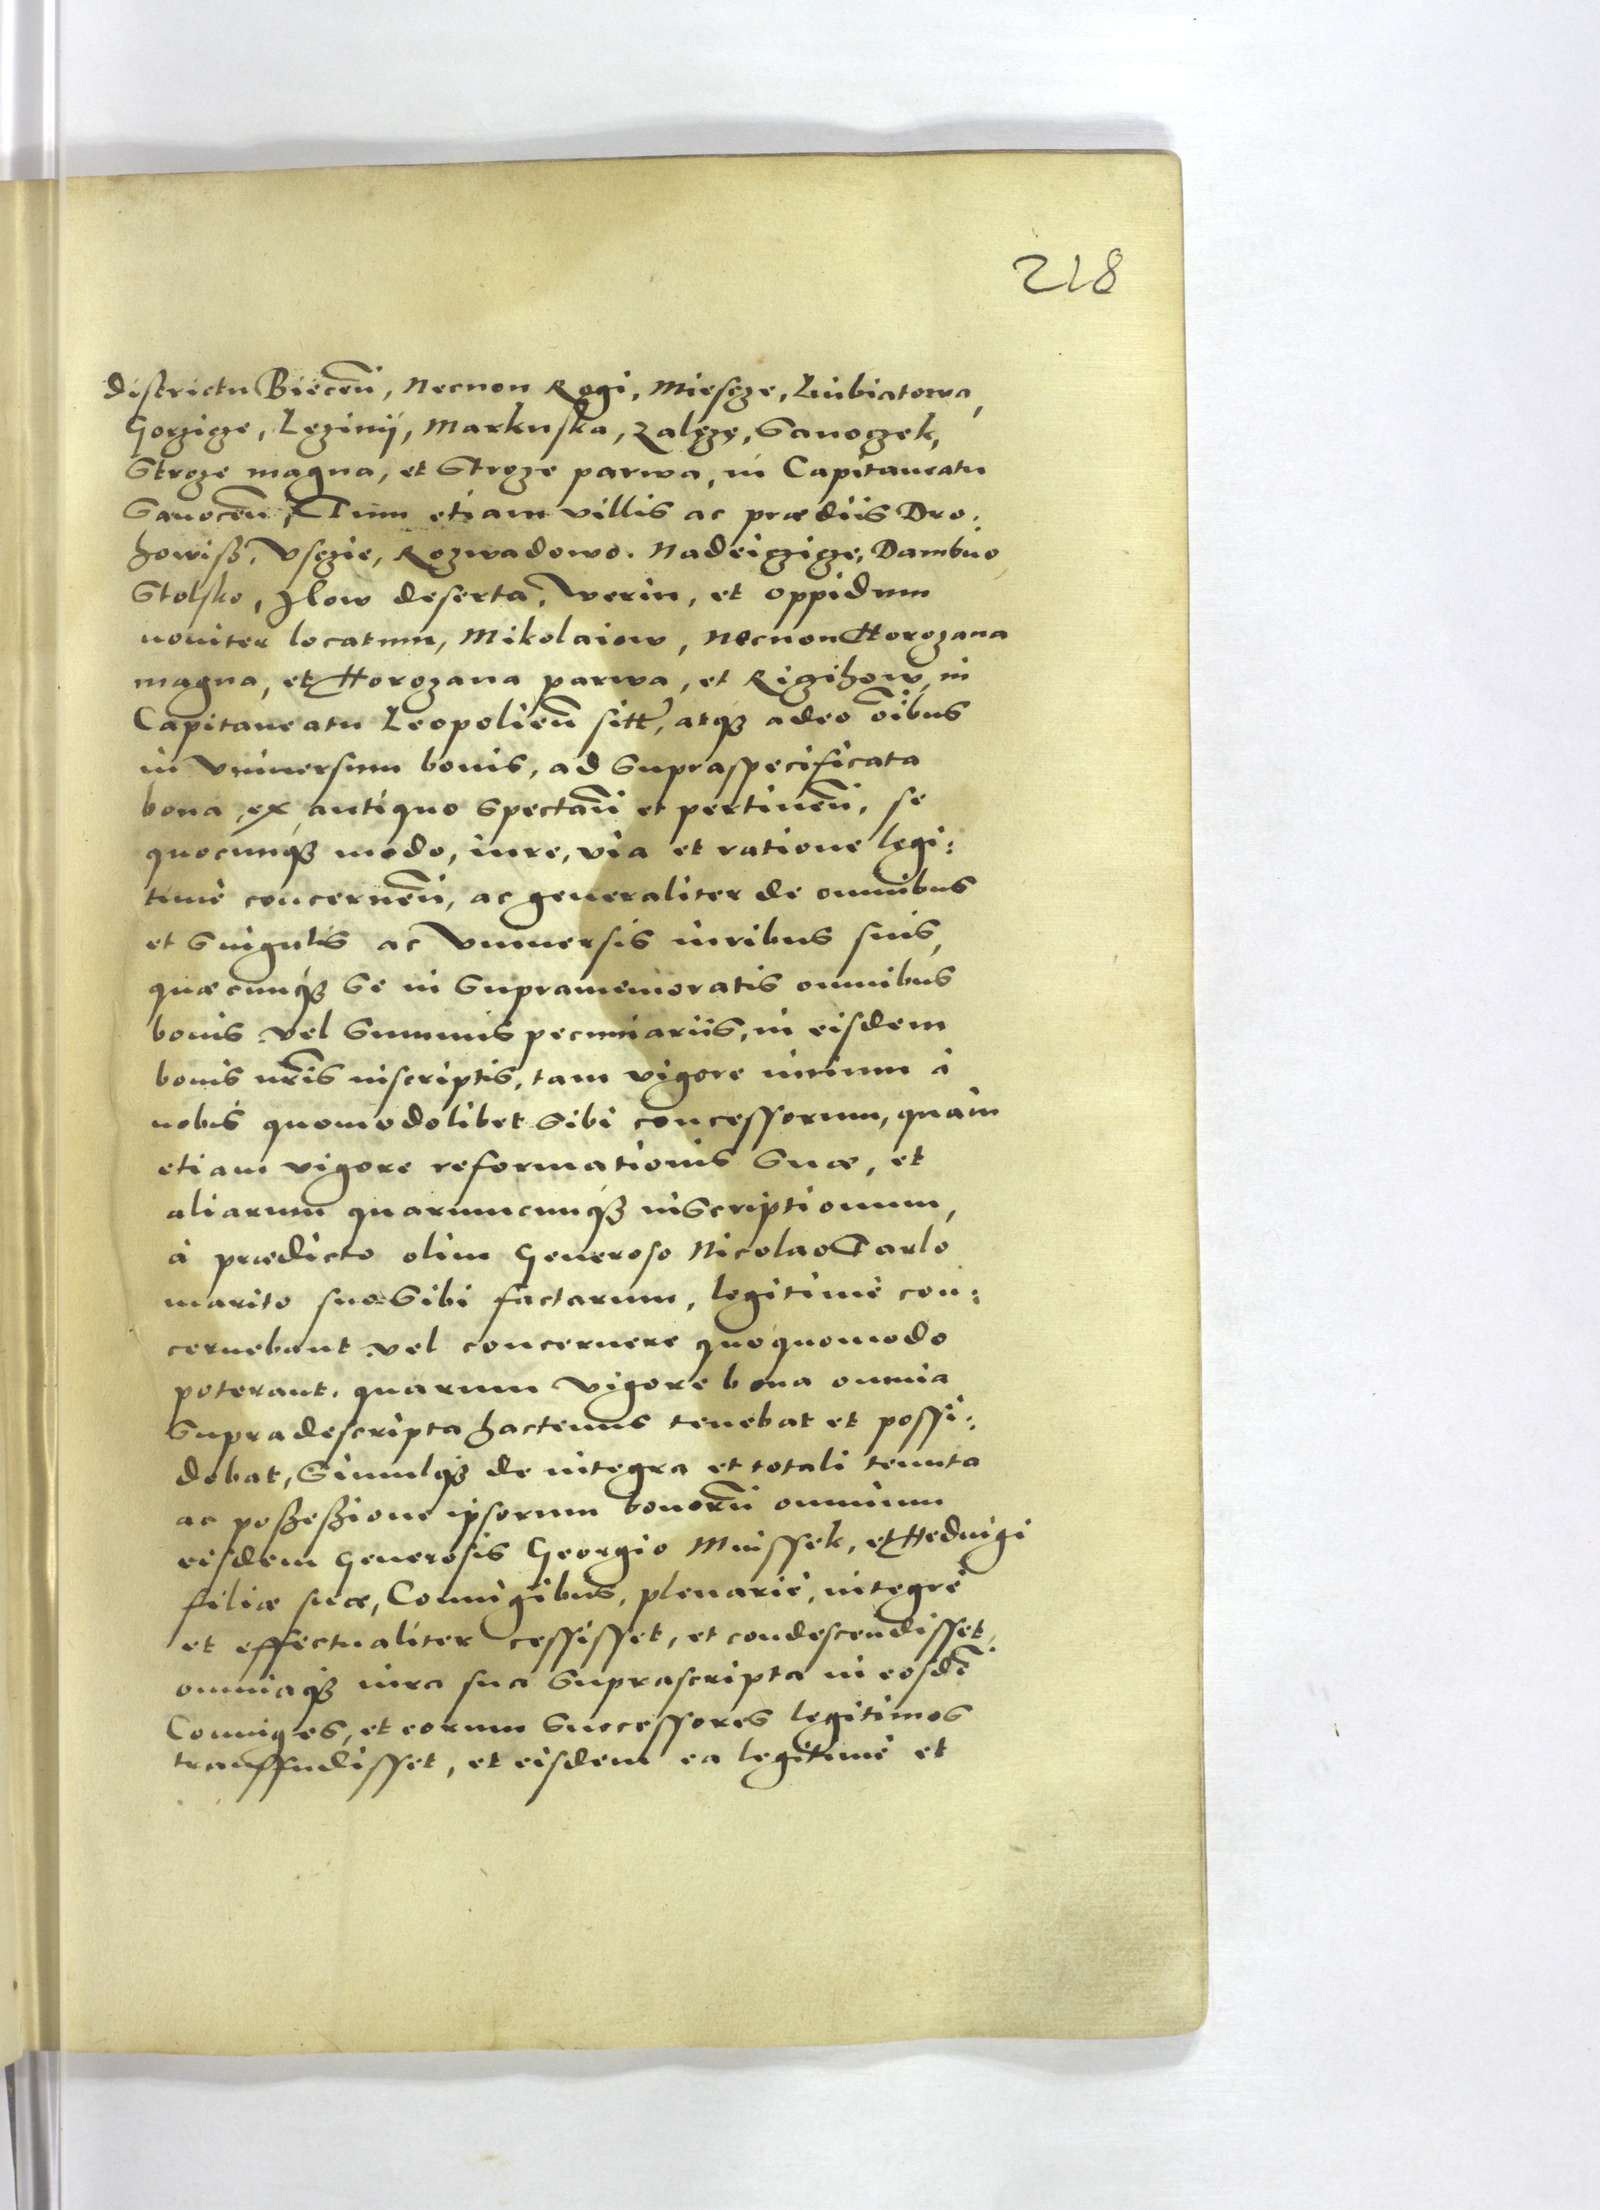 218
districtu Biecen̄, Necnon Rogi, Miescze, Lubiatowa,
Gorzicze, Lezinij, Markuska, Zalęzę, Sanoczek,
Stroze magna, et Stroze parwa, in Capitaneatu
Sanocen̄, Tum etiam villis ac prædiis Dro:
howiß, Vsczie, Rozwadowo. Nadeiczicze, Dambno
Stolsko, Ilow deserta, Werin, et oppidum
noviter locatum, Mikolaiow, Necnon Horozana
magna, et Horozana parwa, et Rigihow, in
Capitaneatu Leopolien̄ sitt, atqȝ adeo oībus
in Vniversum bonis, ad supraspecificata
bona, ex antiquo spectan̄ et pertinen̄, se
quocunqȝ modo, iure, via et ratione legi:
timè concernen̄, ac generaliter de omnibus
et singulis ac Vniversis iuribus suis,
quæcunqȝ se in supramemoratis omnibus
bonis vel summis pecuniariis, in eisdem
bonis nr̄is inscriptis, tam vigore iurium à
nobis quomodolibet sibi concessorum, quàm
etiam vigore reformationis suæ, et
aliarum quarumcunqȝ inscriptionum,
à prædicto olim Generoso Nicolao Tarlo
marito suo sibi factarum, legitimè con:
cernebant vel concernere quoquomodo
poterant. quarum vigore bona omnia
supradescripta hactenus tenebat et possi:
debat, simulqȝ de integra et totali tenuta
ac poßeßione ipsorum bonorū omnium
eisdem Generosis Georgio Mnissek, et Hedvigi
filiæ suæ, Coniugibus, plenariè, integrè
et effectualiter cessisset, et condescendisset,
omniaqȝ iura sua suprascripta in eosdē
Coniuges, et eorum successores legitimos
transfudisset, et eisdem ea legitimè et